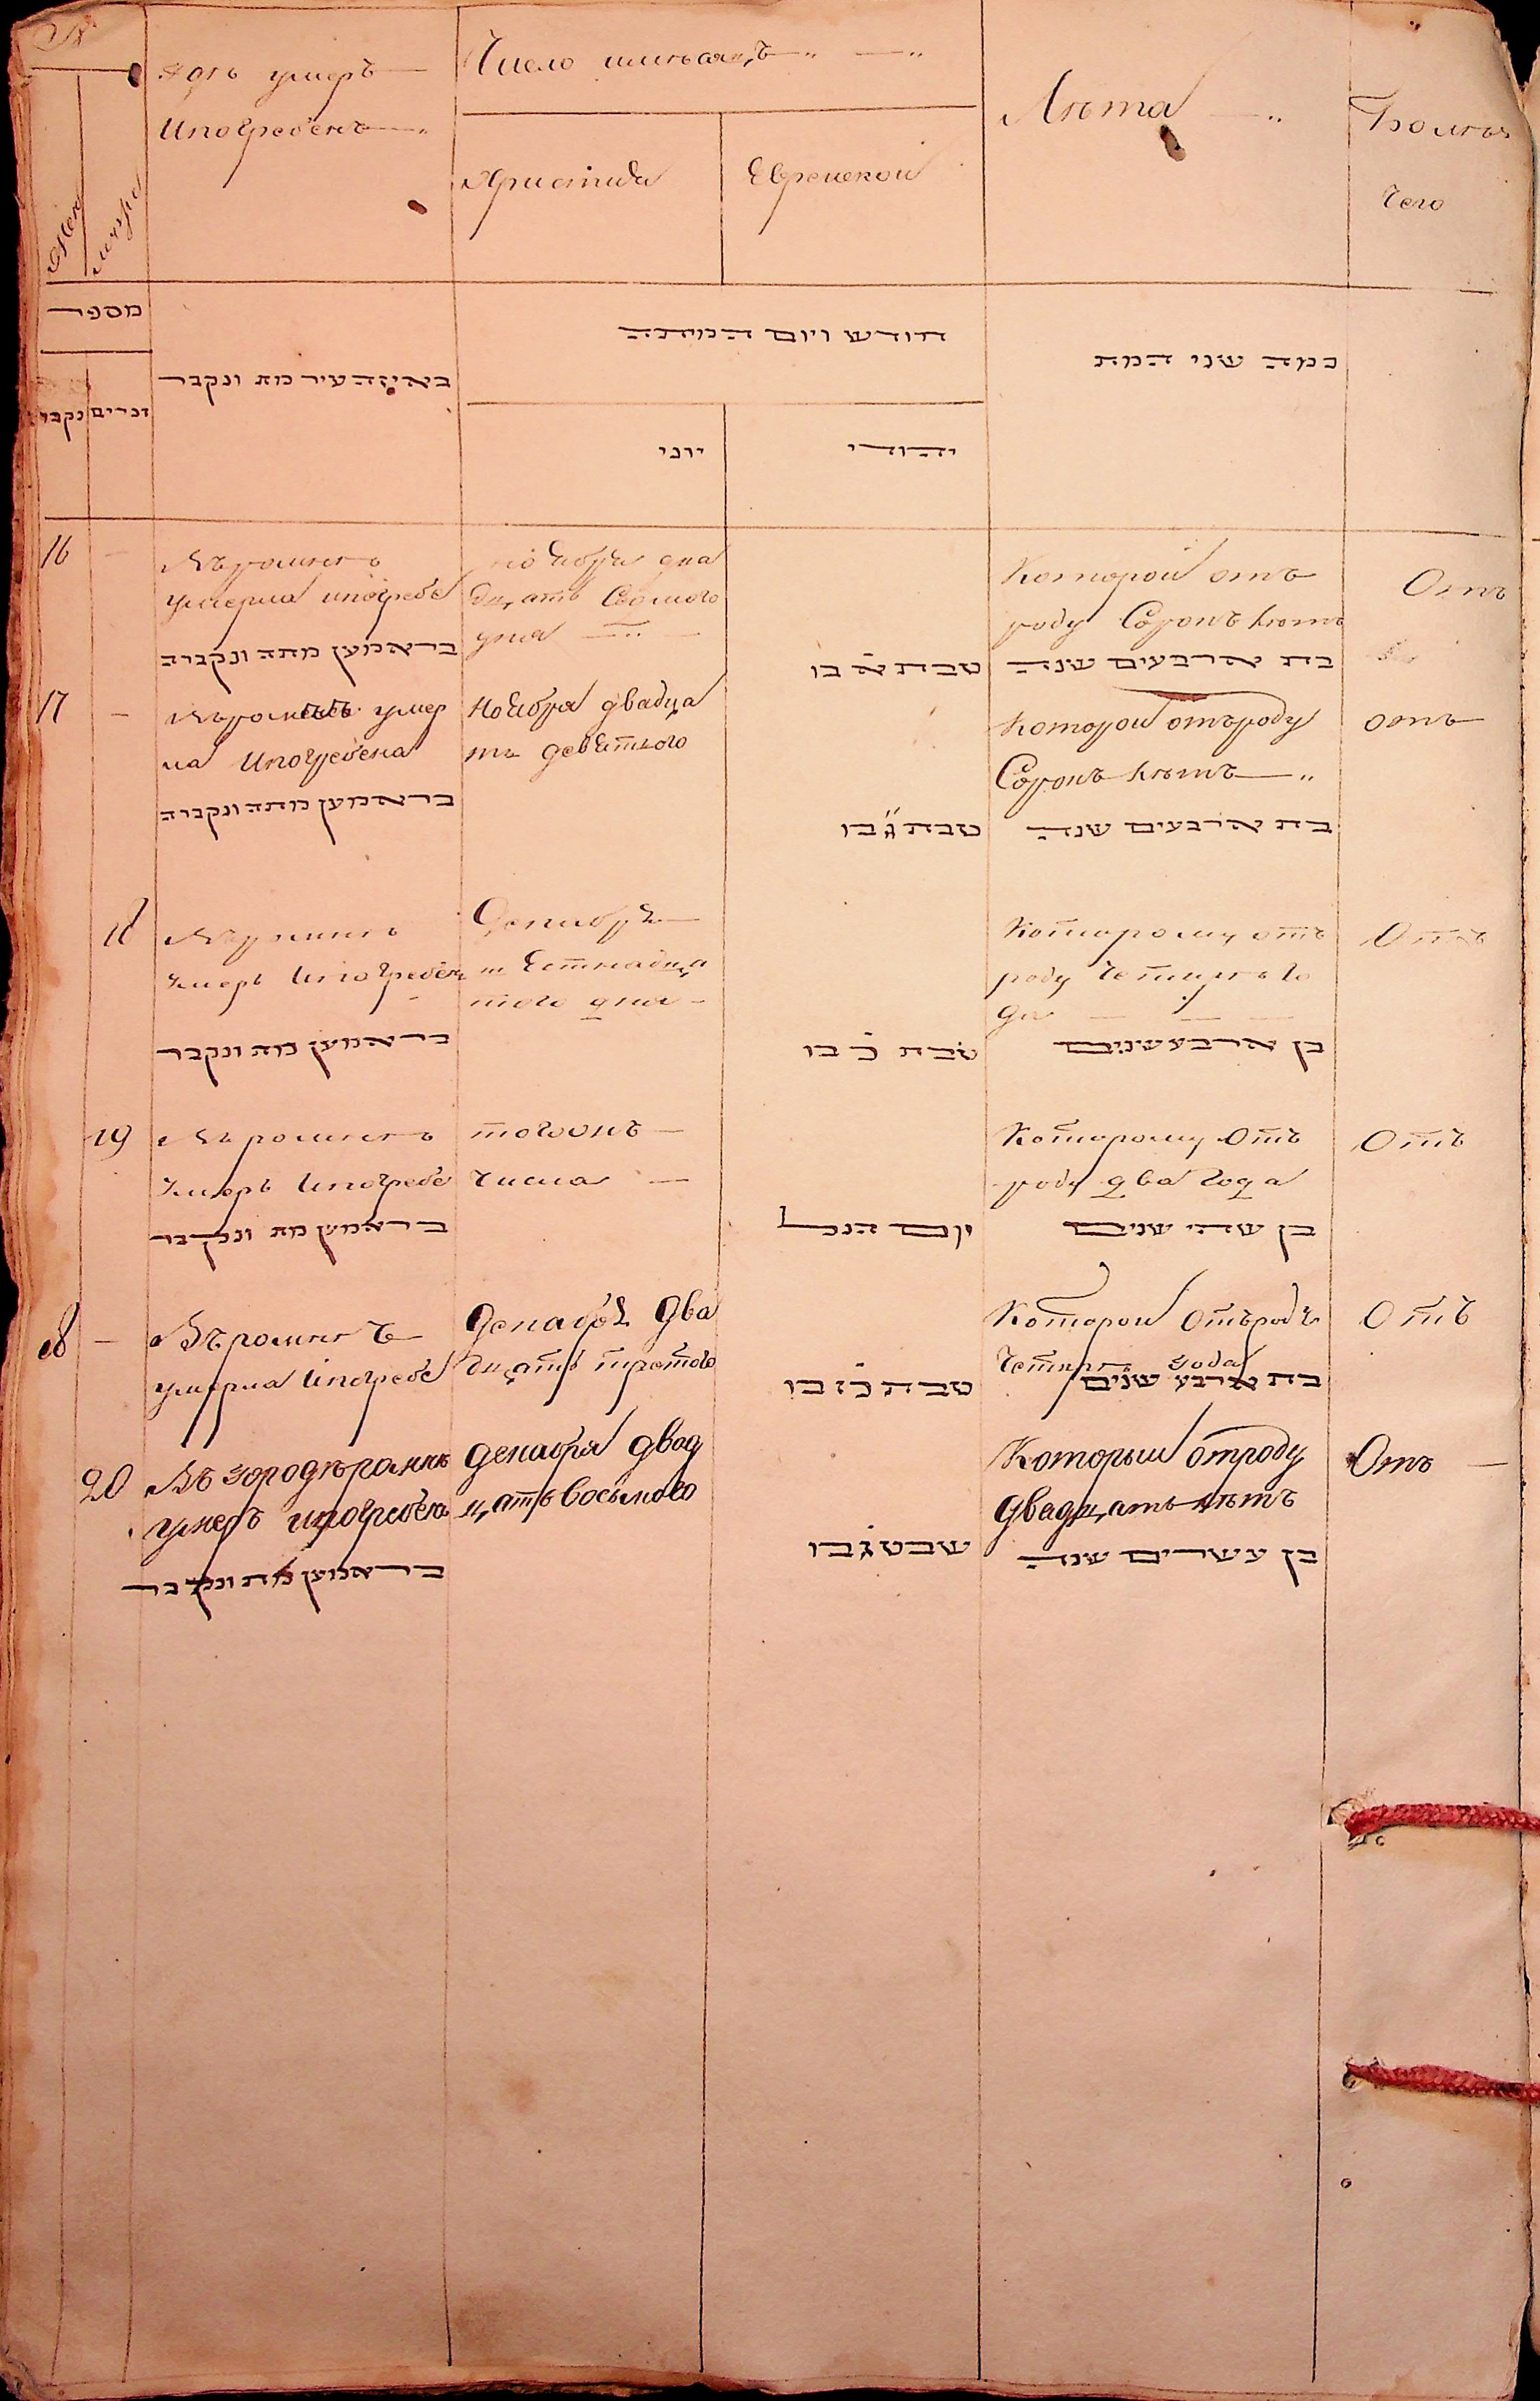 №
Гдѣ умеръ
Ипогребенъ
Число
Христиа
Еврейской
Лѣта
чего
מספר
באיזה עיר מת ונקבר
חודש ויום המיתה
כמה שני המת
זכרים
נקבו
יוני
יהודי
16
умерла ипогребе
בראמען מתה ונקברה
дцать Седмого
дня
טבת א בו
Которой отъ
роду Сорокъ лѣтъ
בת ארבעים שנה
Отъ
17
умер
ла Ипогребена
בראמען מתה ונקברה
Ноября двадца
ть девятого
טבת ג בו
которой отъроду
Сорокъ лѣтъ
בת ארבעים שנה
отъ
18
умеръ Ипогребенъ
בראמען מת ונקבר
того дня
טבת כ בו
Которому отъ
роду четыри го
да
בן ארבע שנים
Отъ
19
умеръ Ипогребе
בראמען מת ונקבר
числа
יום הנ״ל
Которому Отъ
роду два года
בן שתי שנים
Отъ
18
Въромнѣ
умерла Ипогребе
Декабря Два
дцать третого
טבת כז בו
Которой Отъроду
Четыри года
בת ארבע שנים
Отъ
20
Въ городѣ ромнѣ
умеръ ипогребенъ
בראמען מת ונקבר
декабря двад
цать восьмого
שבט ג בו
Который отроду
двадцать лѣтъ
בן עשרים שנה
Отъ